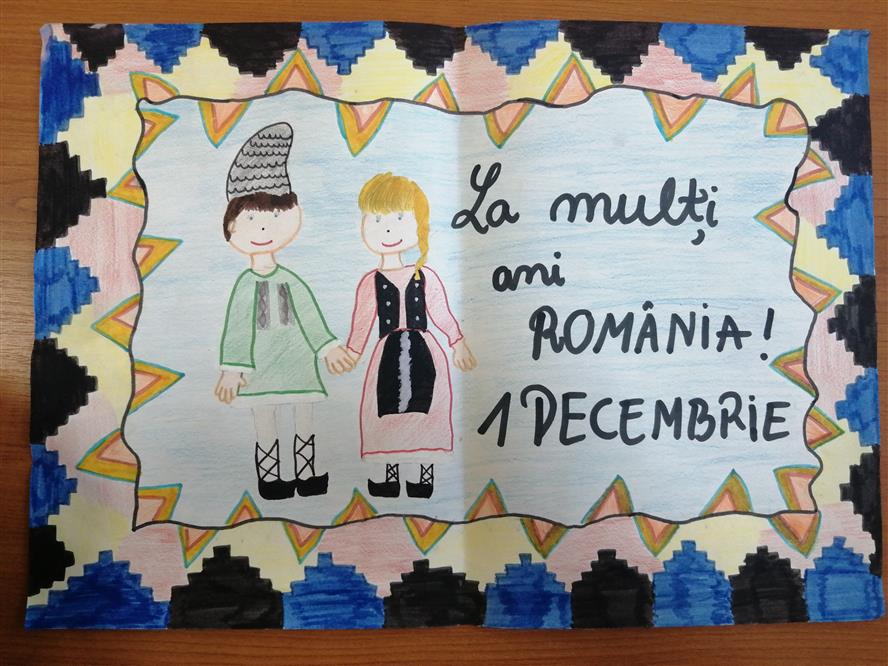 La mulți
ani
ROMÂNIA!
1 DECEMBRIE